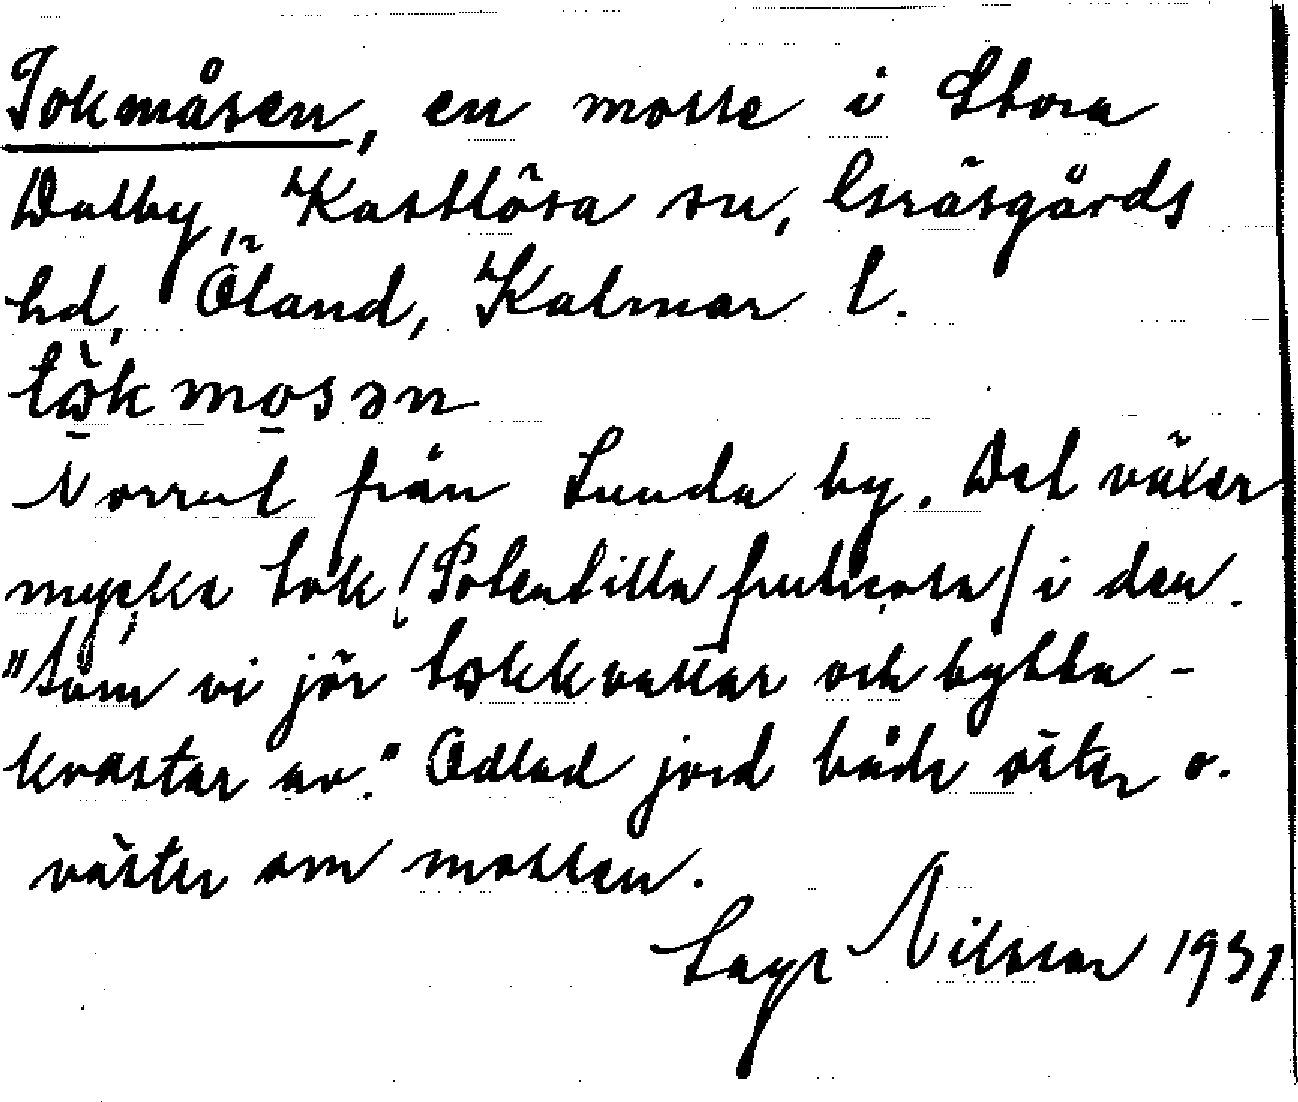 Tokmåsen, en mosse i Stora
Dalby, Kastlösa sn, Gräsgårds
hd, Öland, Kalmar l.
tɷ̀k mosən
Norrut från Lunda by. Det växer
mycke tok /Potentilla fruticosa/ i den.
"Såm vi jör tɷkkvastar och bytta-
kvastar av." Odlad jord både öster o.
väster om mossen.
Lage Nilsson 1931